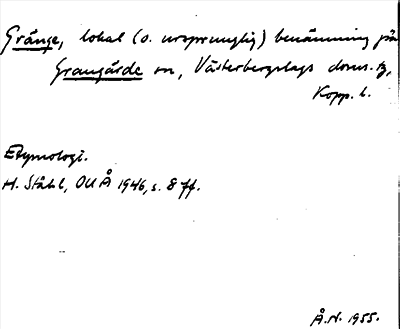 Gränge, lokal (o. ursprunglig) benämning på
Grangärde sn, Västerbergslags doms.tg,
Kopp. l.
Etymologi.
H. Ståhl, OUÅ 1946, s. 8 ff.
Å.N. 1955.